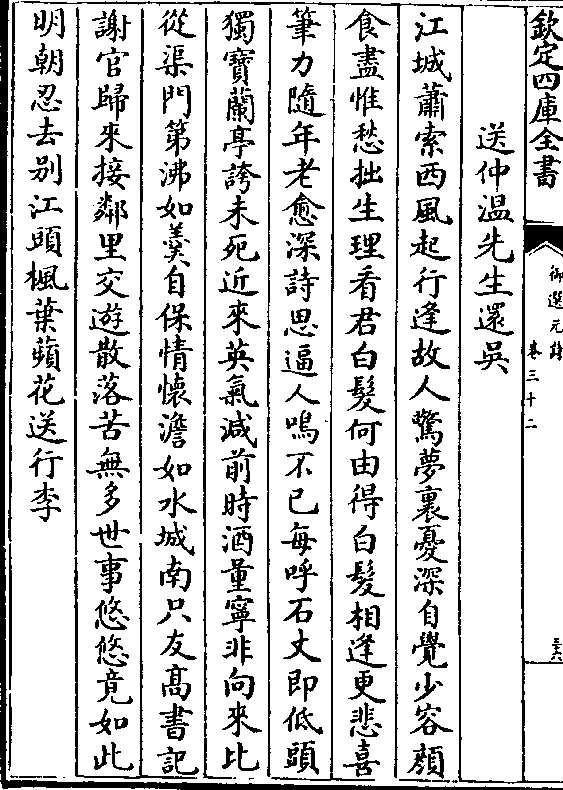 欽定四庫全書
御選元詩
卷三十二
三六
送仲温先生還吳
江城蕭索西風起行逢故人驚夢裏憂深自覺少容顔
食盡惟愁拙生理看君白髮何由得白髮相逢更悲喜
筆力隨年老愈深詩思逼人鳴不已每呼石丈即低頭
獨寶蘭亭誇未死近來英氣減前時酒量寧非向來比
從渠門第沸如羹自保情懷澹如水城南只友髙書記
謝官歸來接鄰里交遊散落苦無多世事悠悠竟如此
明朝忍去别江頭楓葉蘋花送行李